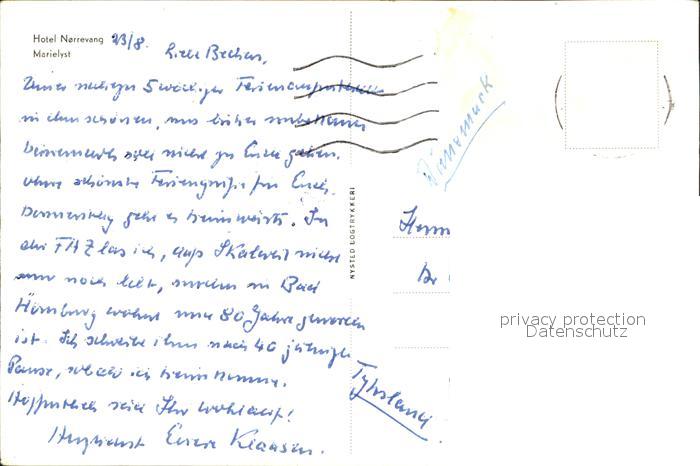 Hotel Nørrevang 23/8.
Marielyst
Liebe
Unser 5 wöchiger Ferienaufenthalt
in dem schönen, uns bisher unbekannten
Dänemark soll nicht zu Ende gehen,
ohne schönste Feriengrüße für Euch.
Donnerstag geht es heimwärts. In
der FAZ las ich, daß Skalweit nicht
nur noch lebt, sondern in Bad
Homburg wohnt und 80 Jahre geworden
ist. Ich schreibe ihm nach 40 jähriger
Pause, sobald ich heimkomme.
Hoffentlich seid Ihr wohlauf!
Herzlichst Eure Klaasen.
NYSTED BOGTRYKKERI
Dänemark
Herrn
Dr
Tyskland
privacy protection
Datenschutz